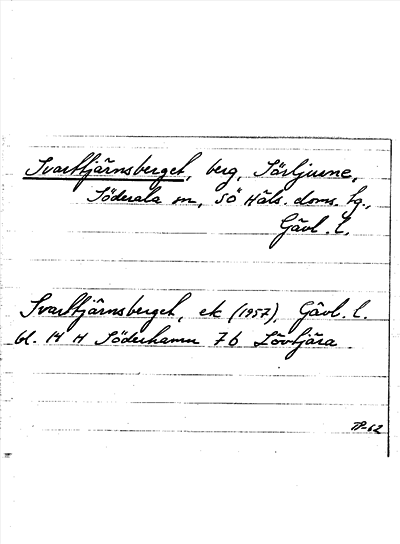 Svarttjärnsberget, berg, Sörljusne,
Söderala sn, Sö Häls. doms. hg.,
Gävl. l.
Svarttjärnsberget, ek (1957), Gävl. l.
bl. 14 H Söderhamn 7 b Lövtjära.